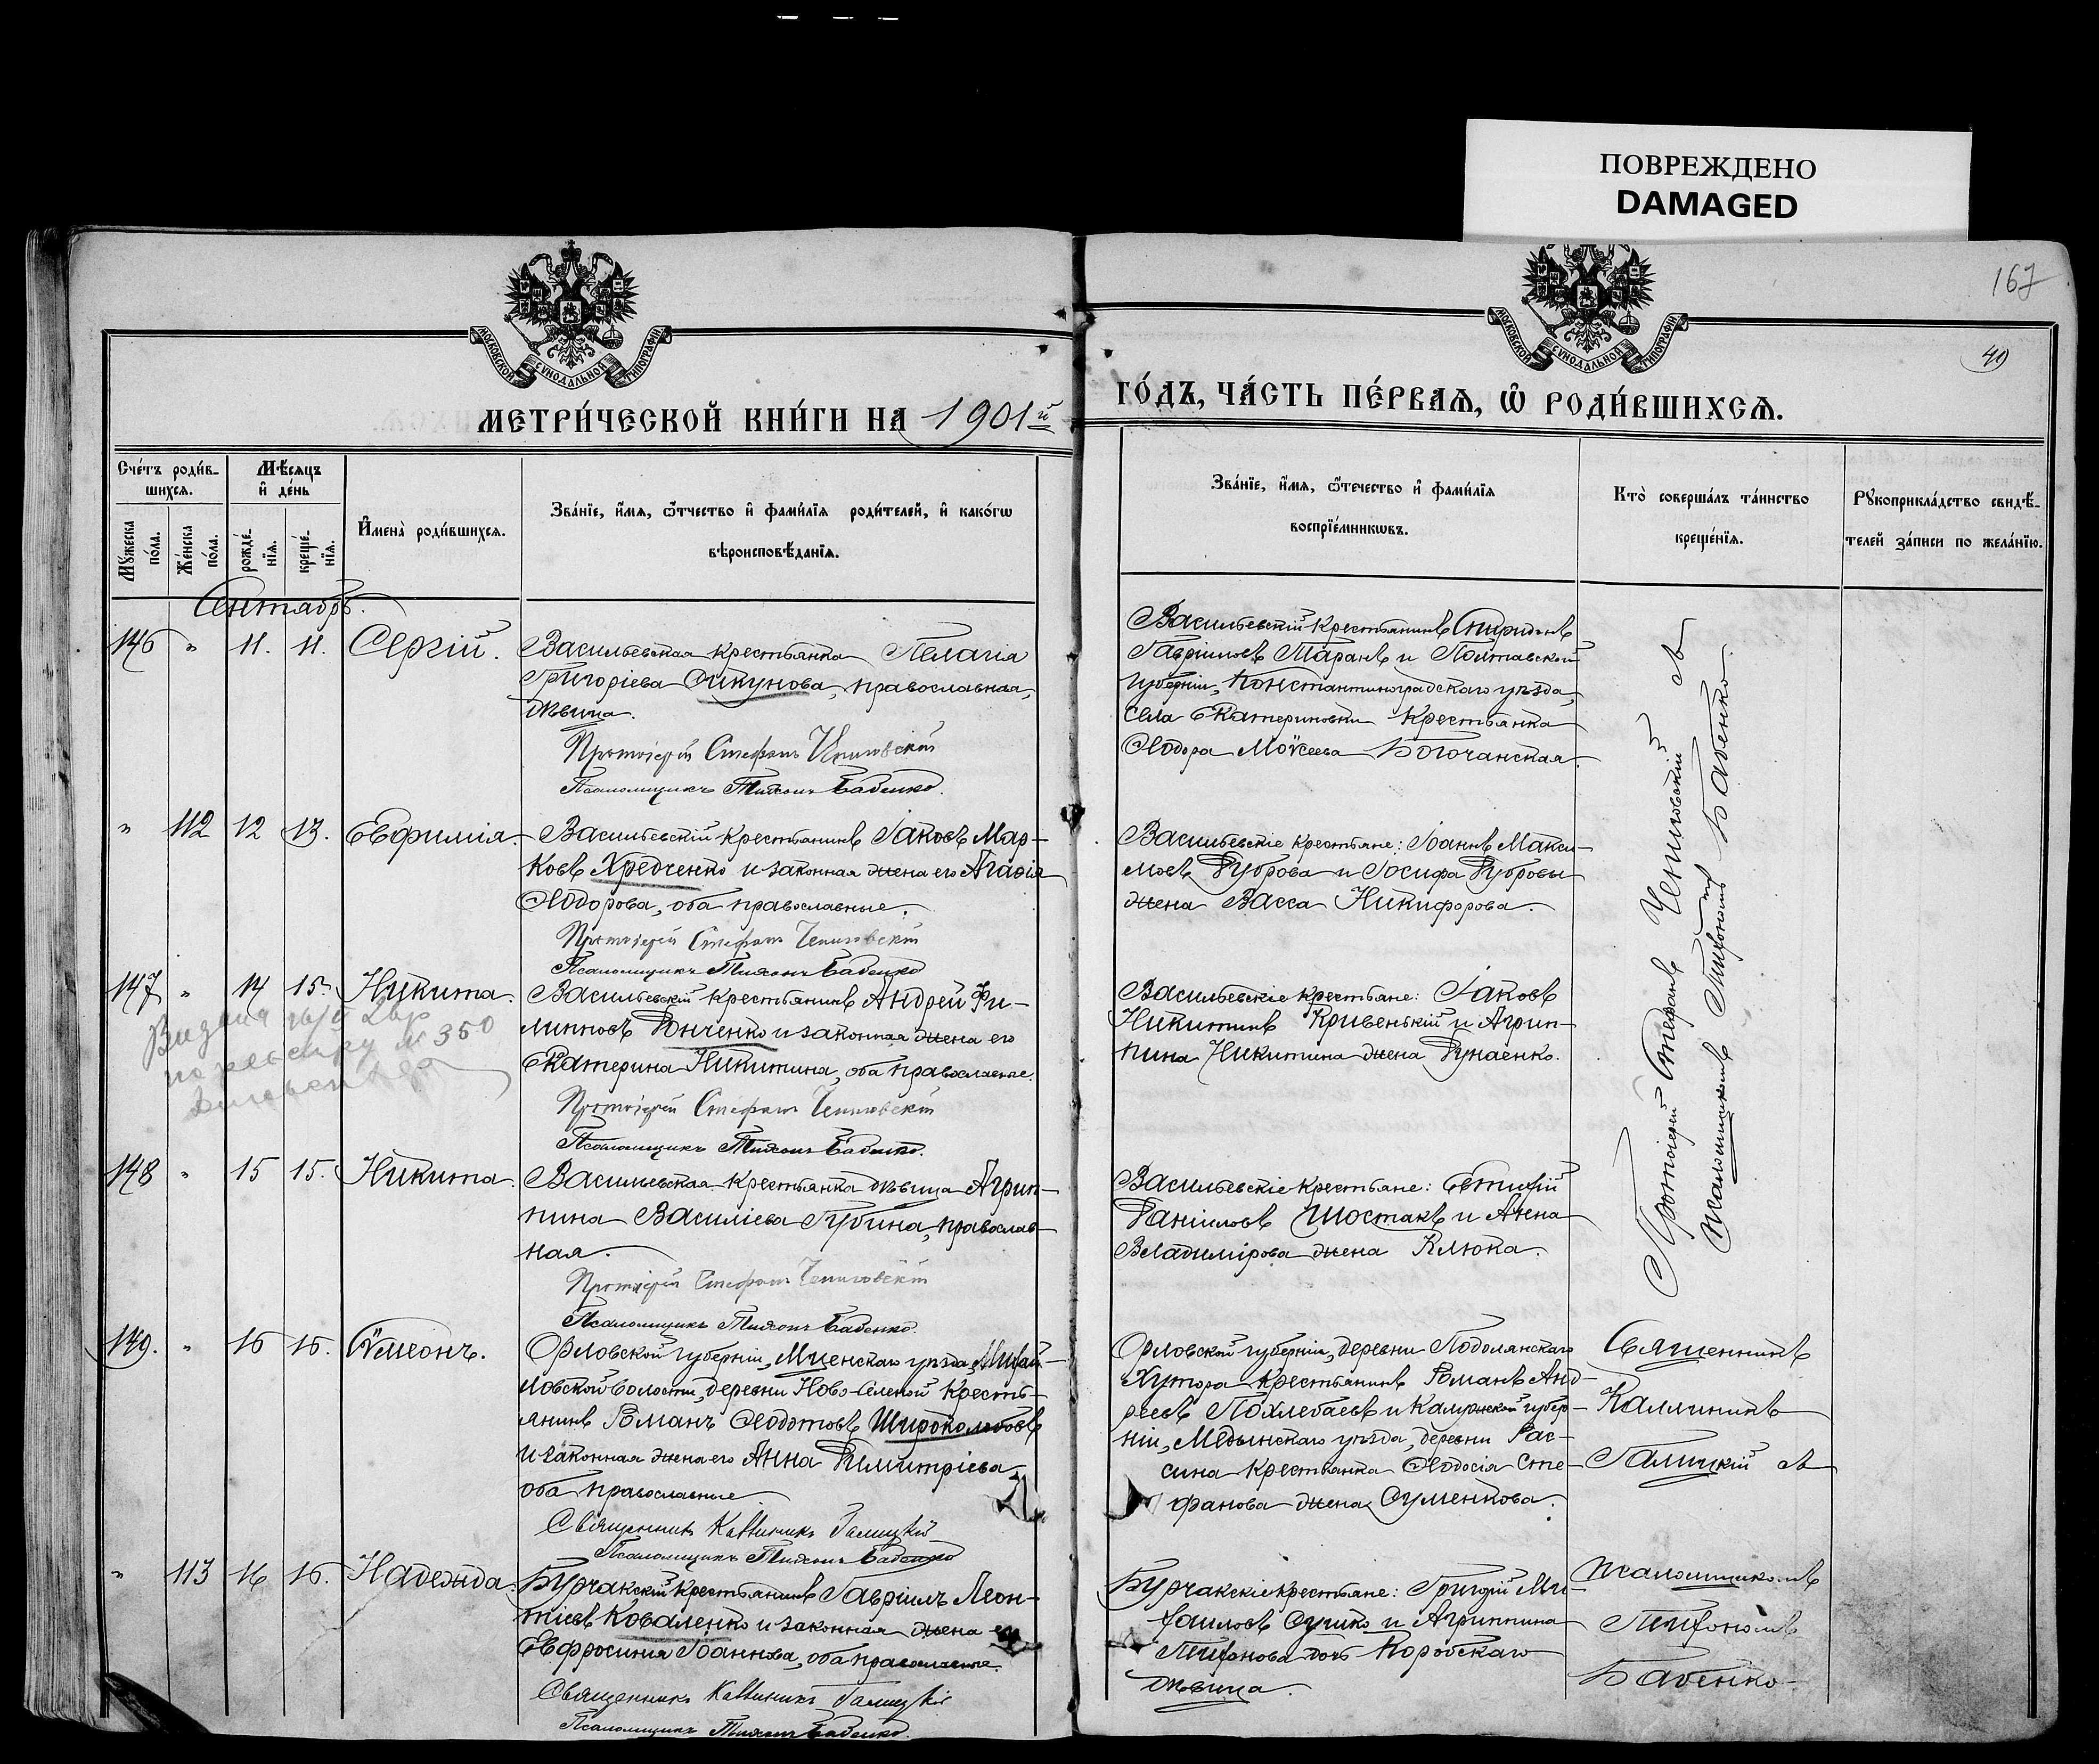 ПОВРЕЖДЕНО
DAMAGED
167
40
МОСКОВСКОЙ СѴНОДАЛЬНОЙ ТИПОГРАФІИ
МОСКОВСКОЙ СѴНОДАЛЬНОЙ ТИПОГРАФІИ
МЕТРИ́ЧЕСКОЙ КНИ́ГИ НА 1901й
ГО́ДЪ, ЧА́СТЬ ПЕ́РВАѦ, Ѽ РОДИ́ВШИХСѦ.
Сче́тъ роди́в-
шихсѧ.
Мꙋ́жеска по́ла.
Же́нска по́ла.
Мѣ́сѧцъ
и҆ де́нь
рожде́-нїѧ.
креще́-нїѧ.
И҆мена̀ роди́вшихсѧ.
Зва́нїе, и҆́мѧ, ѻ҆́тчество и҆ фами́лїѧ роди́телей, и҆ како́гѡ
вѣроисповѣ́данїѧ.
Зва́нїе, и҆́мѧ, ѻ҆те́чество и҆ фами́лїѧ
воспрїе́мникѡвъ.
Кто̀ соверша́лъ та́инство
креще́нїѧ.
Рꙋкоприкла́дство свидѣ́-
телей за́писи по жела́нїю.
Сентябрь.
146 " 11. 11. Сергій.
Васильевская крестьянка Пелагія
Григоріева Дикунова, православная,
дѣвица.
Протоіерей Стефанъ
Псаломщикъ Тихонъ Бабенко.
Васильевскій крестьянинъ Спиридонъ
Гавріиловъ Таранъ и Полтавской
губерніи, Константиноградскаго уѣзда,
села Екатериновки крестьянка
Ѳеодора Моѵсеева Богочанская.
" 112 12 13. Евфимія.
Васильевскій крестьянинъ Іаковъ Мар-
ковъ Хредченко и законная жена его Агафія
Ѳеодорова, оба православные.
Протоіерей Стефанъ
Псаломщикъ Тихонъ Бабенко
Васильевскіе крестьяне: Іоаннъ Макси-
мовъ Дуброва и Іосифа Дубровы
жена Васса Никифорова.
147 " 14 15. Никита.
Васильевскій крестьянинъ Андрей Фи-
липповъ Донченко и законная жена его
Екатерина Никитина, оба православные.
Протоіерей Стефанъ
Псаломщикъ Тихонъ Бабенко.
№ 350
Васильевскіе крестьяне: Іаковъ
Никитинъ Кривенькій и Агрип-
пина Никитина жена Дунаенко.
148 " 15 15. Никита.
Васильевская крестьянка дѣвица Агрип-
пина Василіева Губина, православ-
ная.
Протоіерей Стефанъ
Псаломщикъ Тихонъ Бабенко.
Васильевскіе крестьяне: Евтихій
Даніиловъ Шостакъ и Анна
Владимірова жена Клюка.
Протоіерей Стефанъ съ
псаломщикомъ Тихономъ Бабенко.
149. " 16 16. Сѵмеонъ.
Орловской губерніи, Мценскаго уѣзда, Михай-
ловской волости, деревни Ново-Селеной кресть-
янинъ Романъ Ѳеодотовъ Широколобовъ
и законная жена его Анна Димитріева
оба православные
Священникъ Каллиникъ Галицкій
Псаломщикъ Тихонъ Бабенко
Орловской губерніи, деревни Подолянскаго
Хутора крестьянинъ Романъ Анд-
реевъ Похлебаевъ и Калужской губер-
ніи, Медынскаго уѣзда, деревни Рас-
сина крестьянка Ѳеодосія Сте-
фанова жена Суменкова.
Священникъ
Каллиникъ
Галицкій съ
" 113 16 16. Надежда.
Бурчакскій крестьянинъ Гавріилъ Леон-
тіевъ Коваленко и законная жена его
Евфросинія Іоаннова, оба православные.
Священникъ Каллиникъ Галицкій
Псаломщикъ Тихонъ Бабенко.
Бурчакскіе крестьяне: Григорій Ми-
хаиловъ Сушко и Агриппина
Тихонова дочь Коробскаго
дѣвица.
псаломщикомъ
Тихономъ
Бабенко